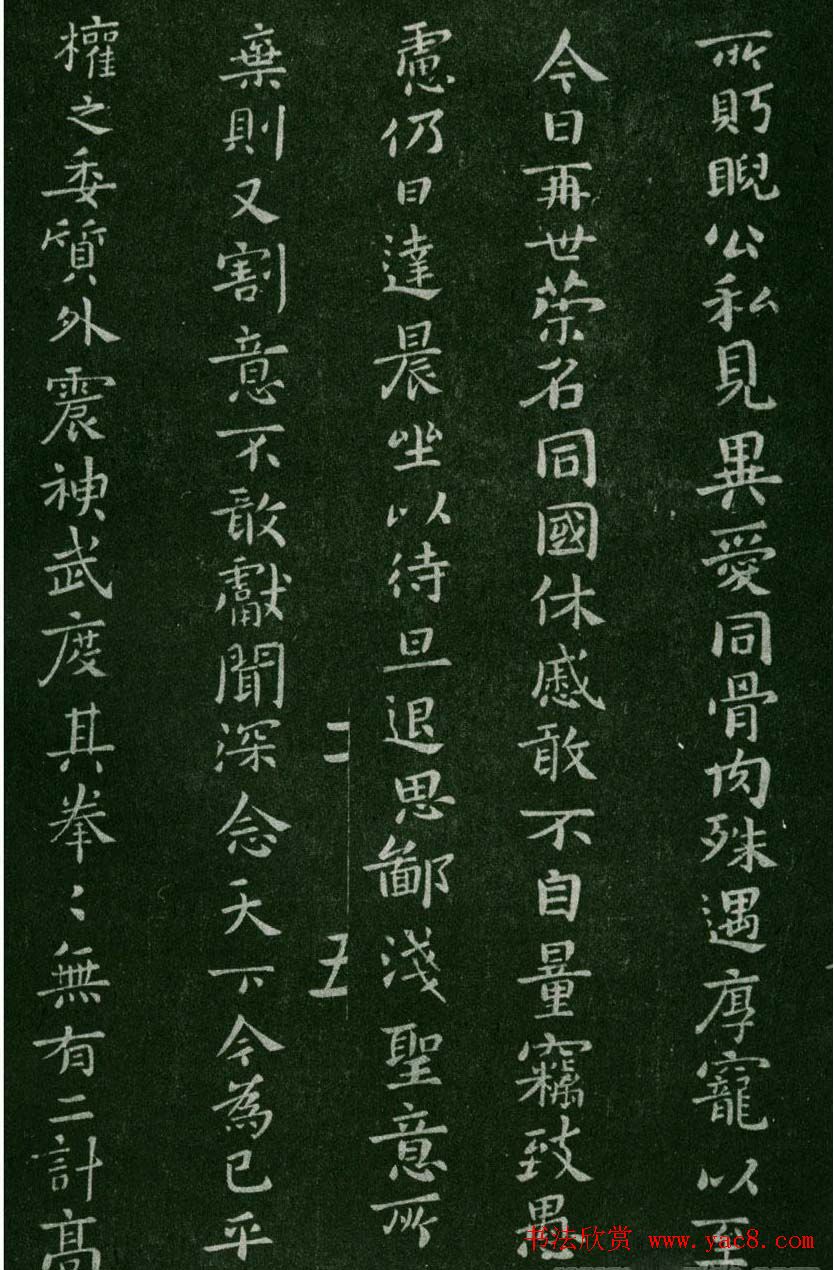 所貺睨公私見異愛同骨肉殊遇厚寵以至
今日再世荣名同國休慼敢不自量竊致愚
慮仍日達晨坐以待旦退思鄙淺聖意所
棄則又割意不敢獻聞深念天下今為已平
權之委質外震神武度其拳〻無有二計高
二 五
书法欣赏 www.yac8.com